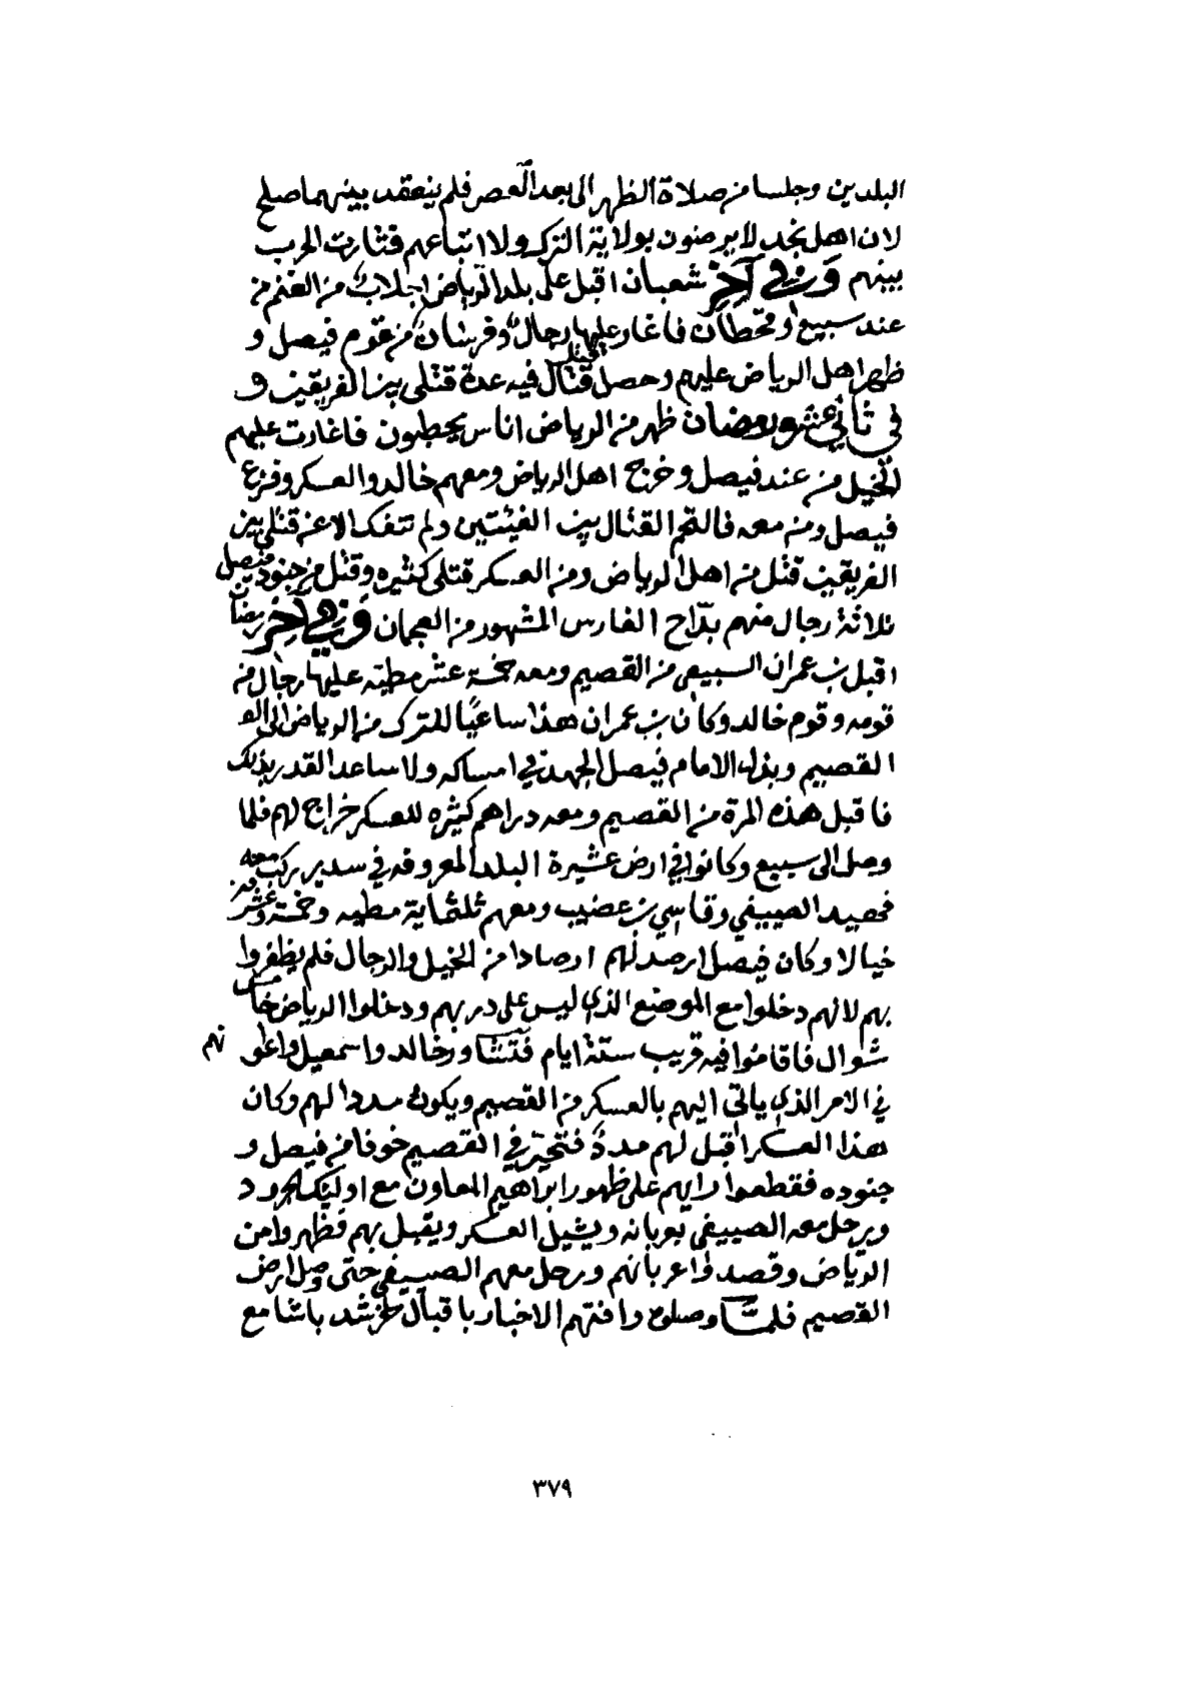 البلدين وجلسا من صلاة الظهر الى بعد العصر فلم ينعقد بينهما صلح
لان اهل نجد لا يرضون بولاية الترك ولا اتباعهم فثارت الحرب
بينهم وفي آخر شعبان اقبل على بلد الرياض اجلاب من الغنم من
عند سبيع وقحطان فاغار عليها رجال وفرسان من قوم فيصل و
ظهر اهل الرياض عليهم وحصل قتال قتل فيه عدة قتلى بين الفريقين و
في ثاني عشر رمضان ظهر من الرياض اناس يحطبون فاغارت عليهم
الخيل من عند فيصل وخرج اهل الرياض ومعهم خالد والعسكر وفزع
فيصل ومن معه فالتحم القتال بين الفيئتين ولم تنفك الا عن قتلى بين
الفريقين قتل من اهل الرياض ومن العسكر قتلى كثيره وقتل من جنود فيصل
ثلاثة رجال منهم بداح الفارس المشهور من العجمان وفي آخر رمضان
اقبل بن عمران السبيعي من القصيم ومعه خمسة عشر مطيه عليها رجال من
قومه وقوم خالد وكان بن عمران هذا ساعيًا للترك من الرياض الى
القصيم وبذل الامام فيصل الجهد في امساكه ولا ساعد القدر بذلك
فاقبل هذه المرة من القصيم ومعه دراهم كثيره للعسكر خراج لهم فلما
وصل الى سبيع وكانوا في ارض عشيرة البلد المعروفه في سدير ركب معه
فهيد الصييفي وقاسي بن عضيب ومعهم ثلثماية مطيه وخمسة وعشرون
خيالا وكان فيصل ارصد لهم ارصادا من الخيل والرجال فلم يظفروا
بهم لانهم دخلوا مع الموضع الذي ليس على دربهم ودخلوا الرياض خامس
شوال فاقاموا فيه قريب ستة ايام فتشاور خالد واسمعيل واعوانهم
في الامر الذي ياتى اليهم بالعسكر من القصيم ويكون مددا لهم وكان
هذا العسكر اقبل لهم مددً فتحيّر في القصيم خوفا من فيصل و
جنوده فقطعوا رايهم على ظهور ابراهيم المعاون مع اوليك الجرود
ويرحل معه الصييفي بعربانه ويشيل العسكر ويقبل بهم فظهروا من
الرياض وقصدوا عربانهم ورحل معهم الصييفي حتى وصل ارض
القصيم فلما وصلوه وافتهم الاخبار باقبال خرشد باشا مع
٣٧٩